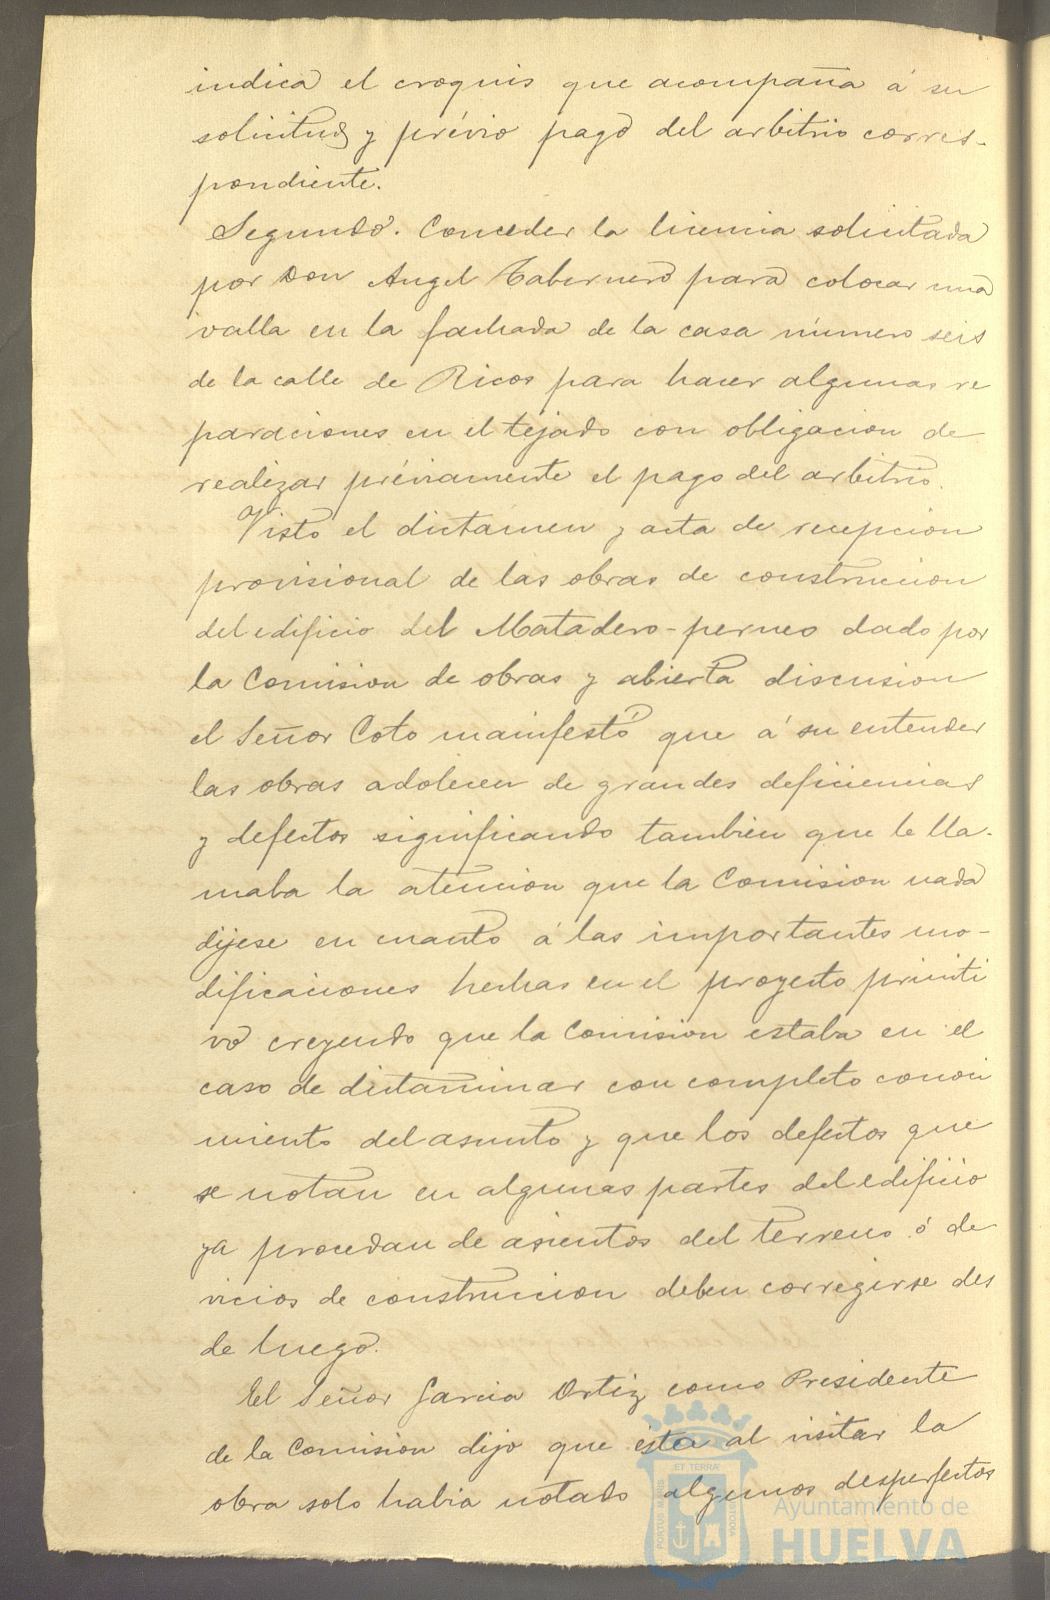 indica el croquis que acompaña á su
solicitud y prévio pago del arbitrio corres-
pondiente.
Segundo. Conceder la licencia solicitada
por Don Angel Tabernero para colocar una
valla en la fachada de la casa número seis
de la calle de Ricos para hacer algunas re
paraciones en el tejado con obligacion de
realizar préviamente el pago del arbitrio.
Visto el dictamen y acta de recepcion
provisional de las obras de construccion
del edificio del Matadero-perneo dado por
la Comision de obras y abierta discusion
el Señor Coto manifestó que á su entender
las obras adolecen de grandes deficiencias
y defectos significando tambien que le lla-
maba la atencion que la Comision nada
dijese en cuanto á las importantes mo-
dificaciones hechas en el proyecto primiti
vo creyendo que la Comision estaba en el
caso de dictaminar con completo conoci
miento del asunto y que los defectos que
se notan en algunas partes del edificio
ya procedan de asientos del terreno ó de
vicios de construccion deben corregirse des
de luego.
El Señor Garcia Ortiz como Presidente
de la Comision dijo que ésta al visitar la
obra solo habia notado algunos desperfectos
PORTUS MARIS ET TERRAE CUSTODIA
Ayuntamiento de
HUELVA